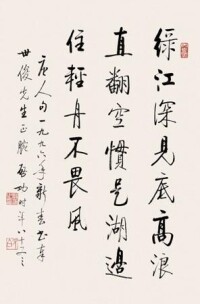 綠江深見底高浪
直翻空慣是湖邊
住輕舟不畏風
唐人句一九九六年新春書奉
世俊先生正腕啟功時年八十三